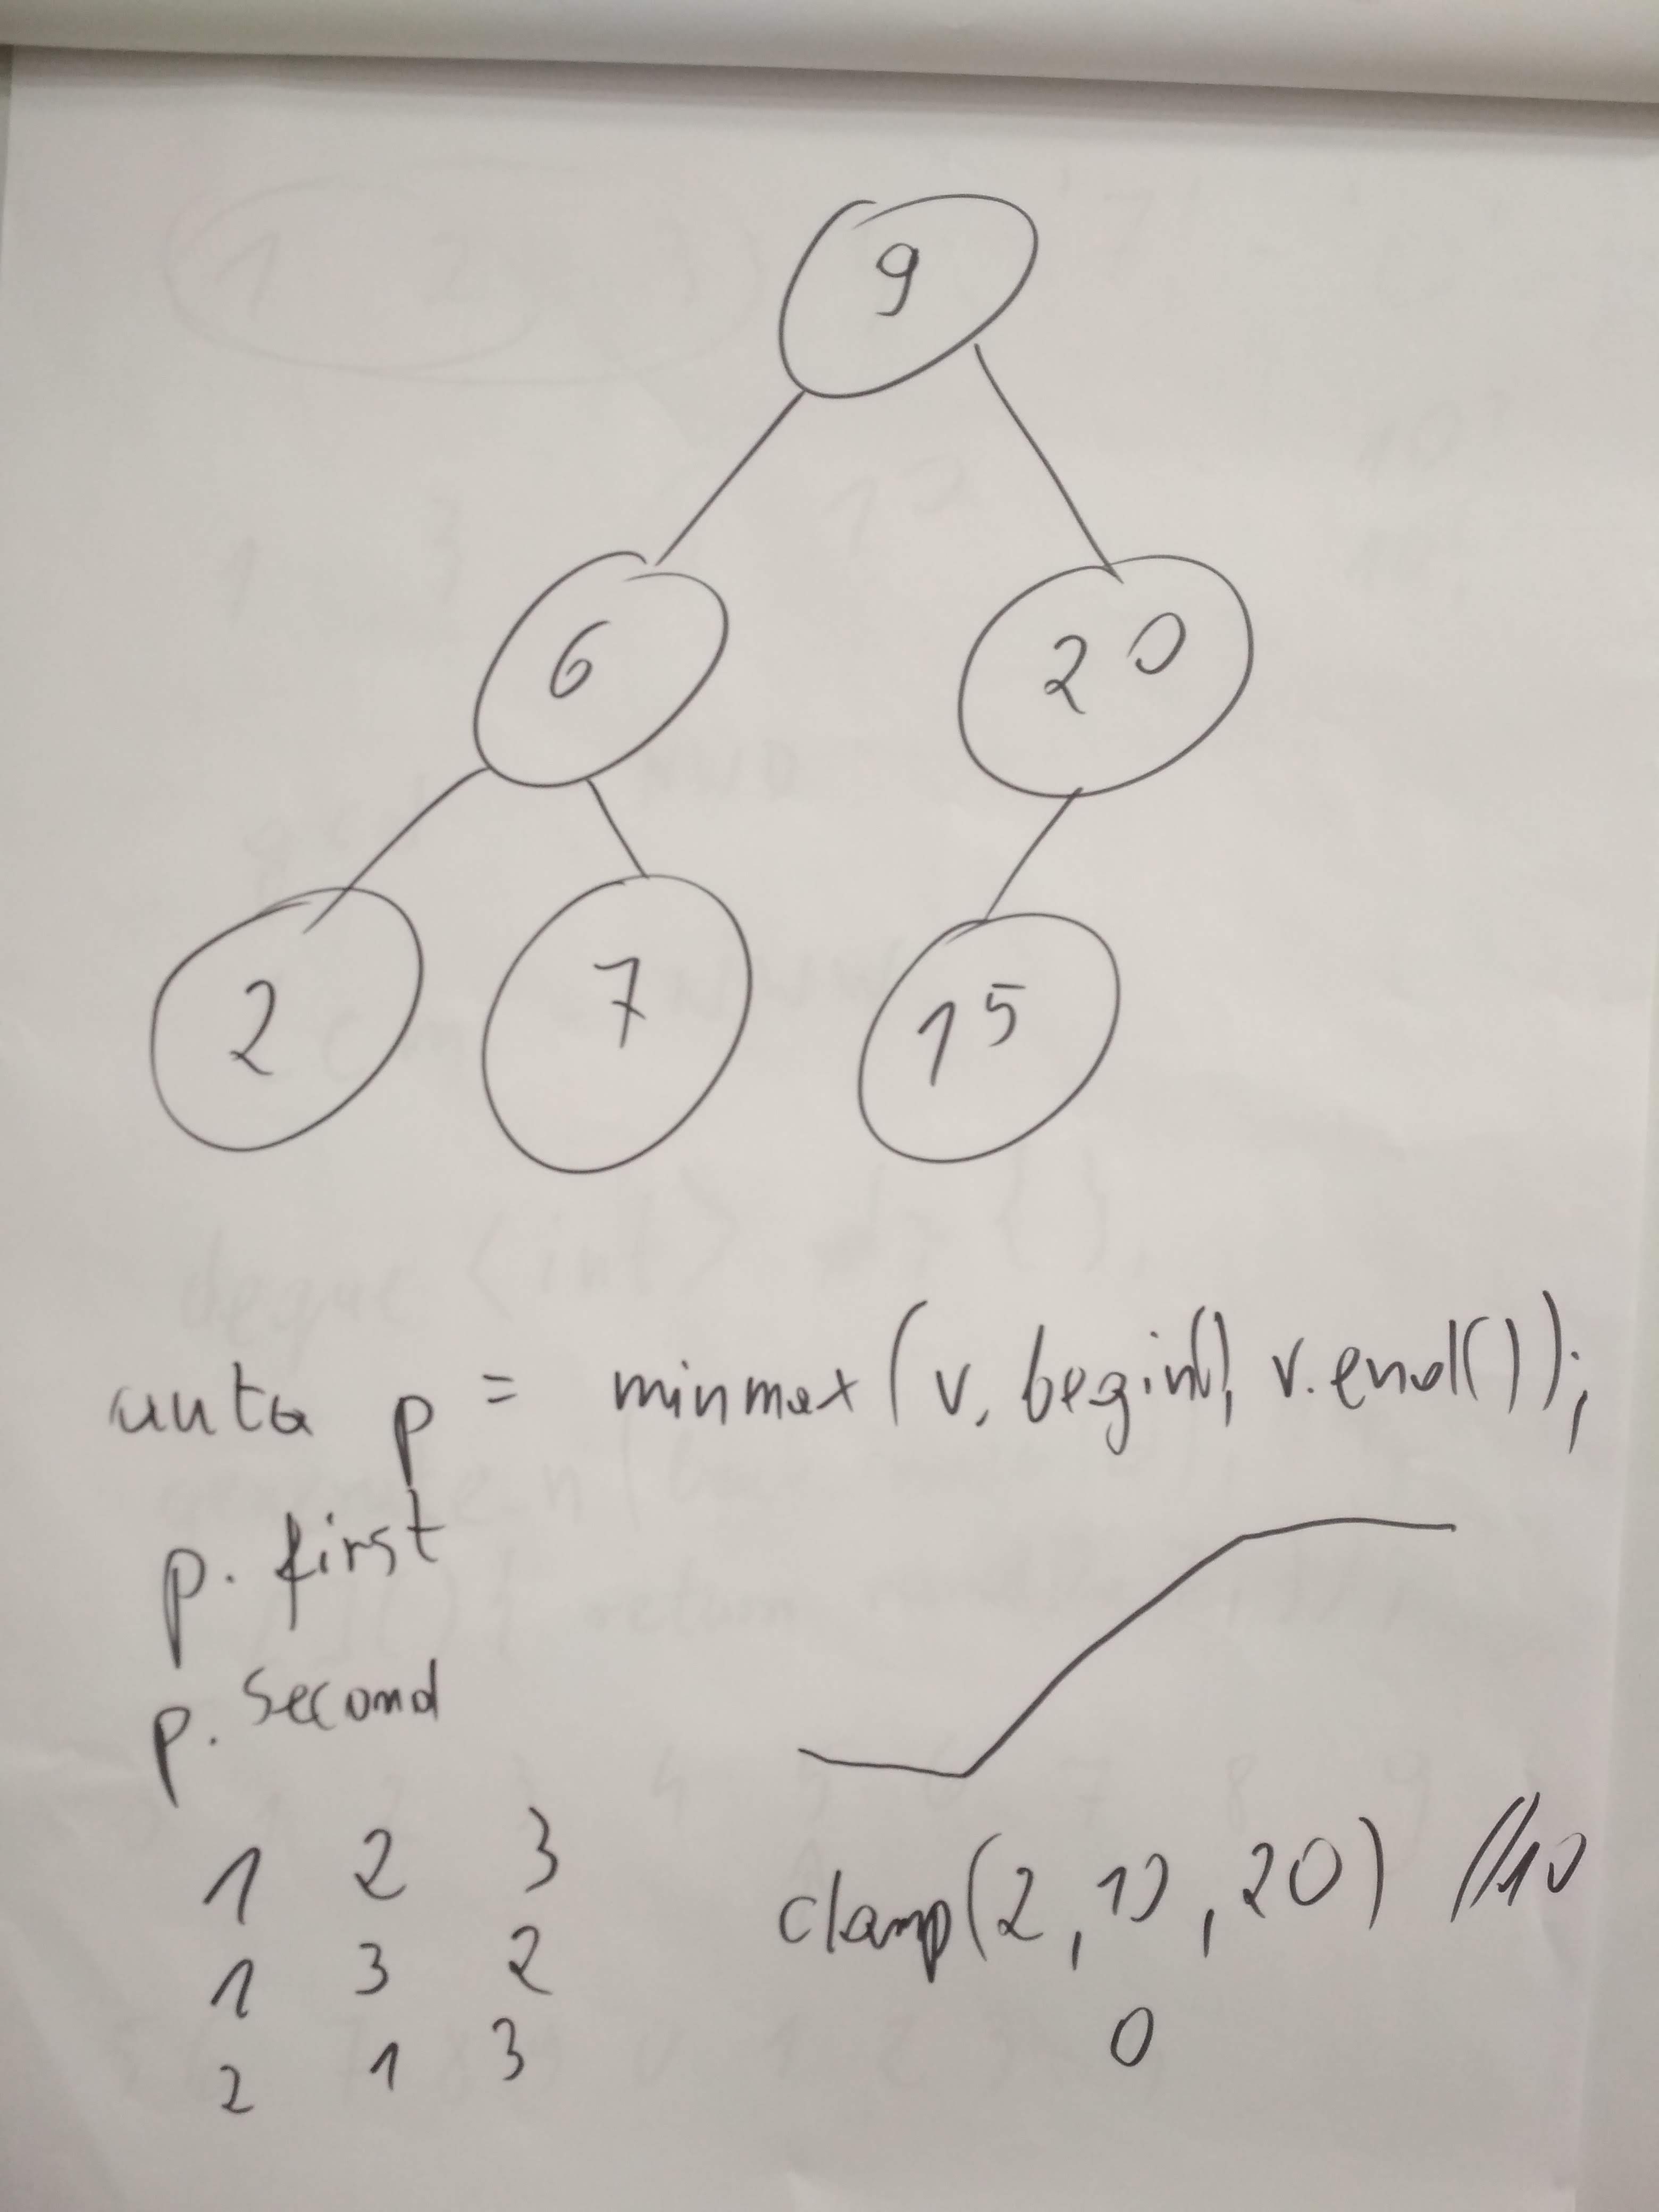 9
6 20
2 7 15
auto p = minmax(v.begin(), v.end());
p.first
p.second
1 2 3
1 3 2
2 1 3
clamp(2, 10, 20) //10
0